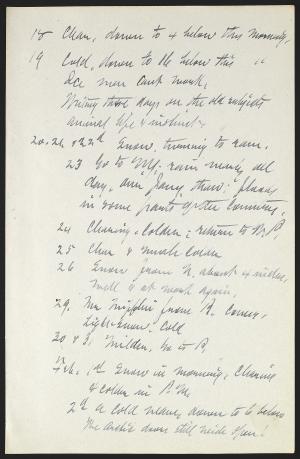 18 Clear, down to 4 below this morning.
19 Cold, down to 16 below this "
Ice men cant work.
Writing these days on the old subjects
animal life & instinct
20, 21 & 22d Snow, turning to rain.
23 Go to N.Y. rain nearly all
day,
in some parts of the
24 Clearing & colder; return to W. P.
25 Clear & much colder
26 Snow from N. about 4 inches,
Well & at work again.
29. Mr from R. comes,
Light snow. Cold
30 & 31. Milder, Go to P,
Feb. 1st Snow in morning, Clearing
& colder in P.M.
2d a cold wave, down to 6 below
The Arctic doors still wide open!